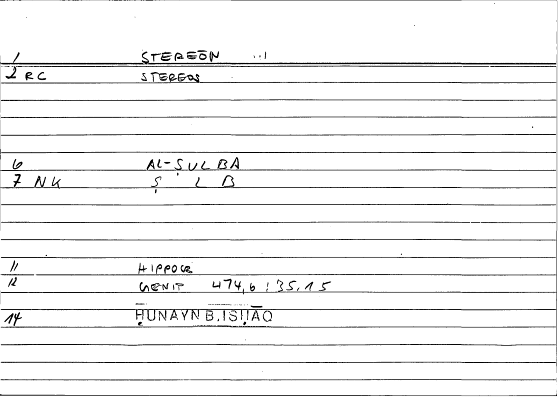 1 STEREŌN
2 RC STEREOS
6 AL-ṢULBA
7 NK Ṣ L B
11 HIPPOCR
12 GENIT 474,6 : 35.15
14 ḤUNAYN B. ISḤĀQ